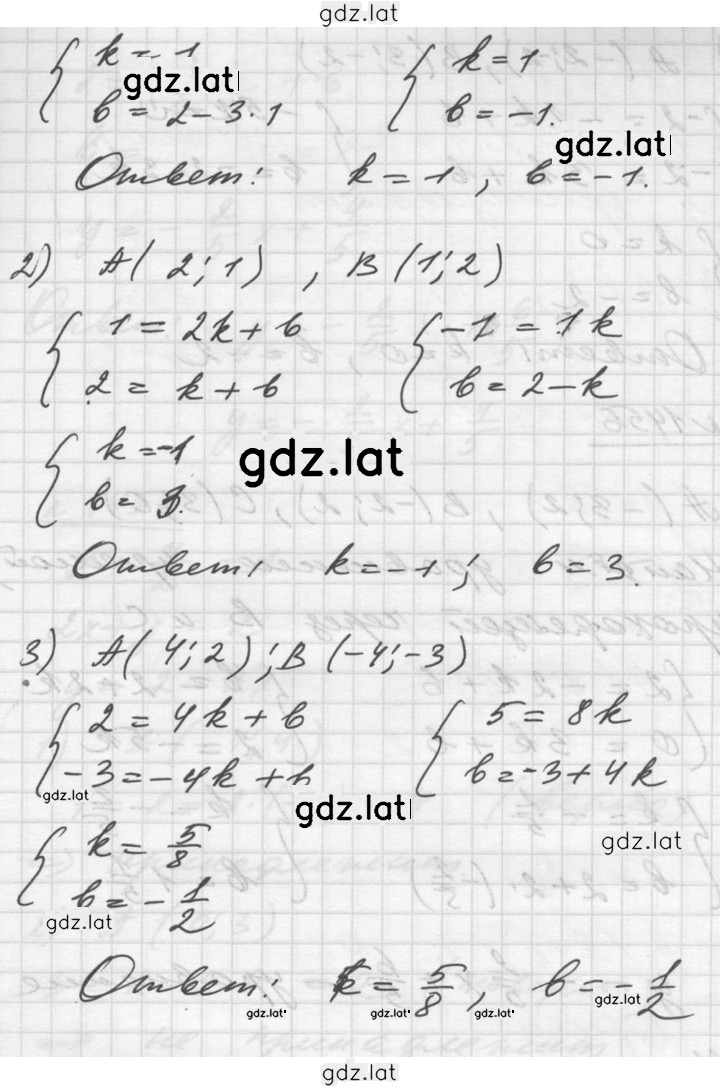 gdz.lat
{ k = 1 { k = 1
gdz.lat
b = 2 - 3 · 1 b = -1.
gdz.lat
Ответ: k = 1, b = -1.
2) A(2; 1), B(1; 2)
{ 1 = 2k + b { -1 = 1k
2 = k + b b = 2 - k
{ k = -1
gdz.lat
b = 3.
Ответ: k = -1; b = 3.
3) A(4; 2); B(-4; -3)
{ 2 = 4k + b { 5 = 8k
-3 = -4k + b b = -3 + 4k
gdz.lat
gdz.lat
{ k = 5/8
gdz.lat
b = - 1/2
gdz.lat
Ответ: k = 5/8, b = - 1/2
gdz.lat
gdz.lat gdz.lat gdz.lat
gdz.lat